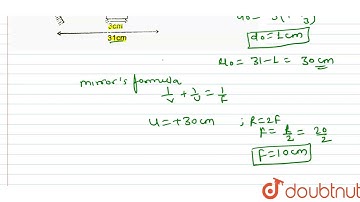 3cm
31cm
d₀=1cm
u₀ = 31-L = 30cm
mirror's formula
1/v + 1/u = 1/f
u=+30cm ; R=2F
F= R/2 = 20/2
F=10cm
doubtnut